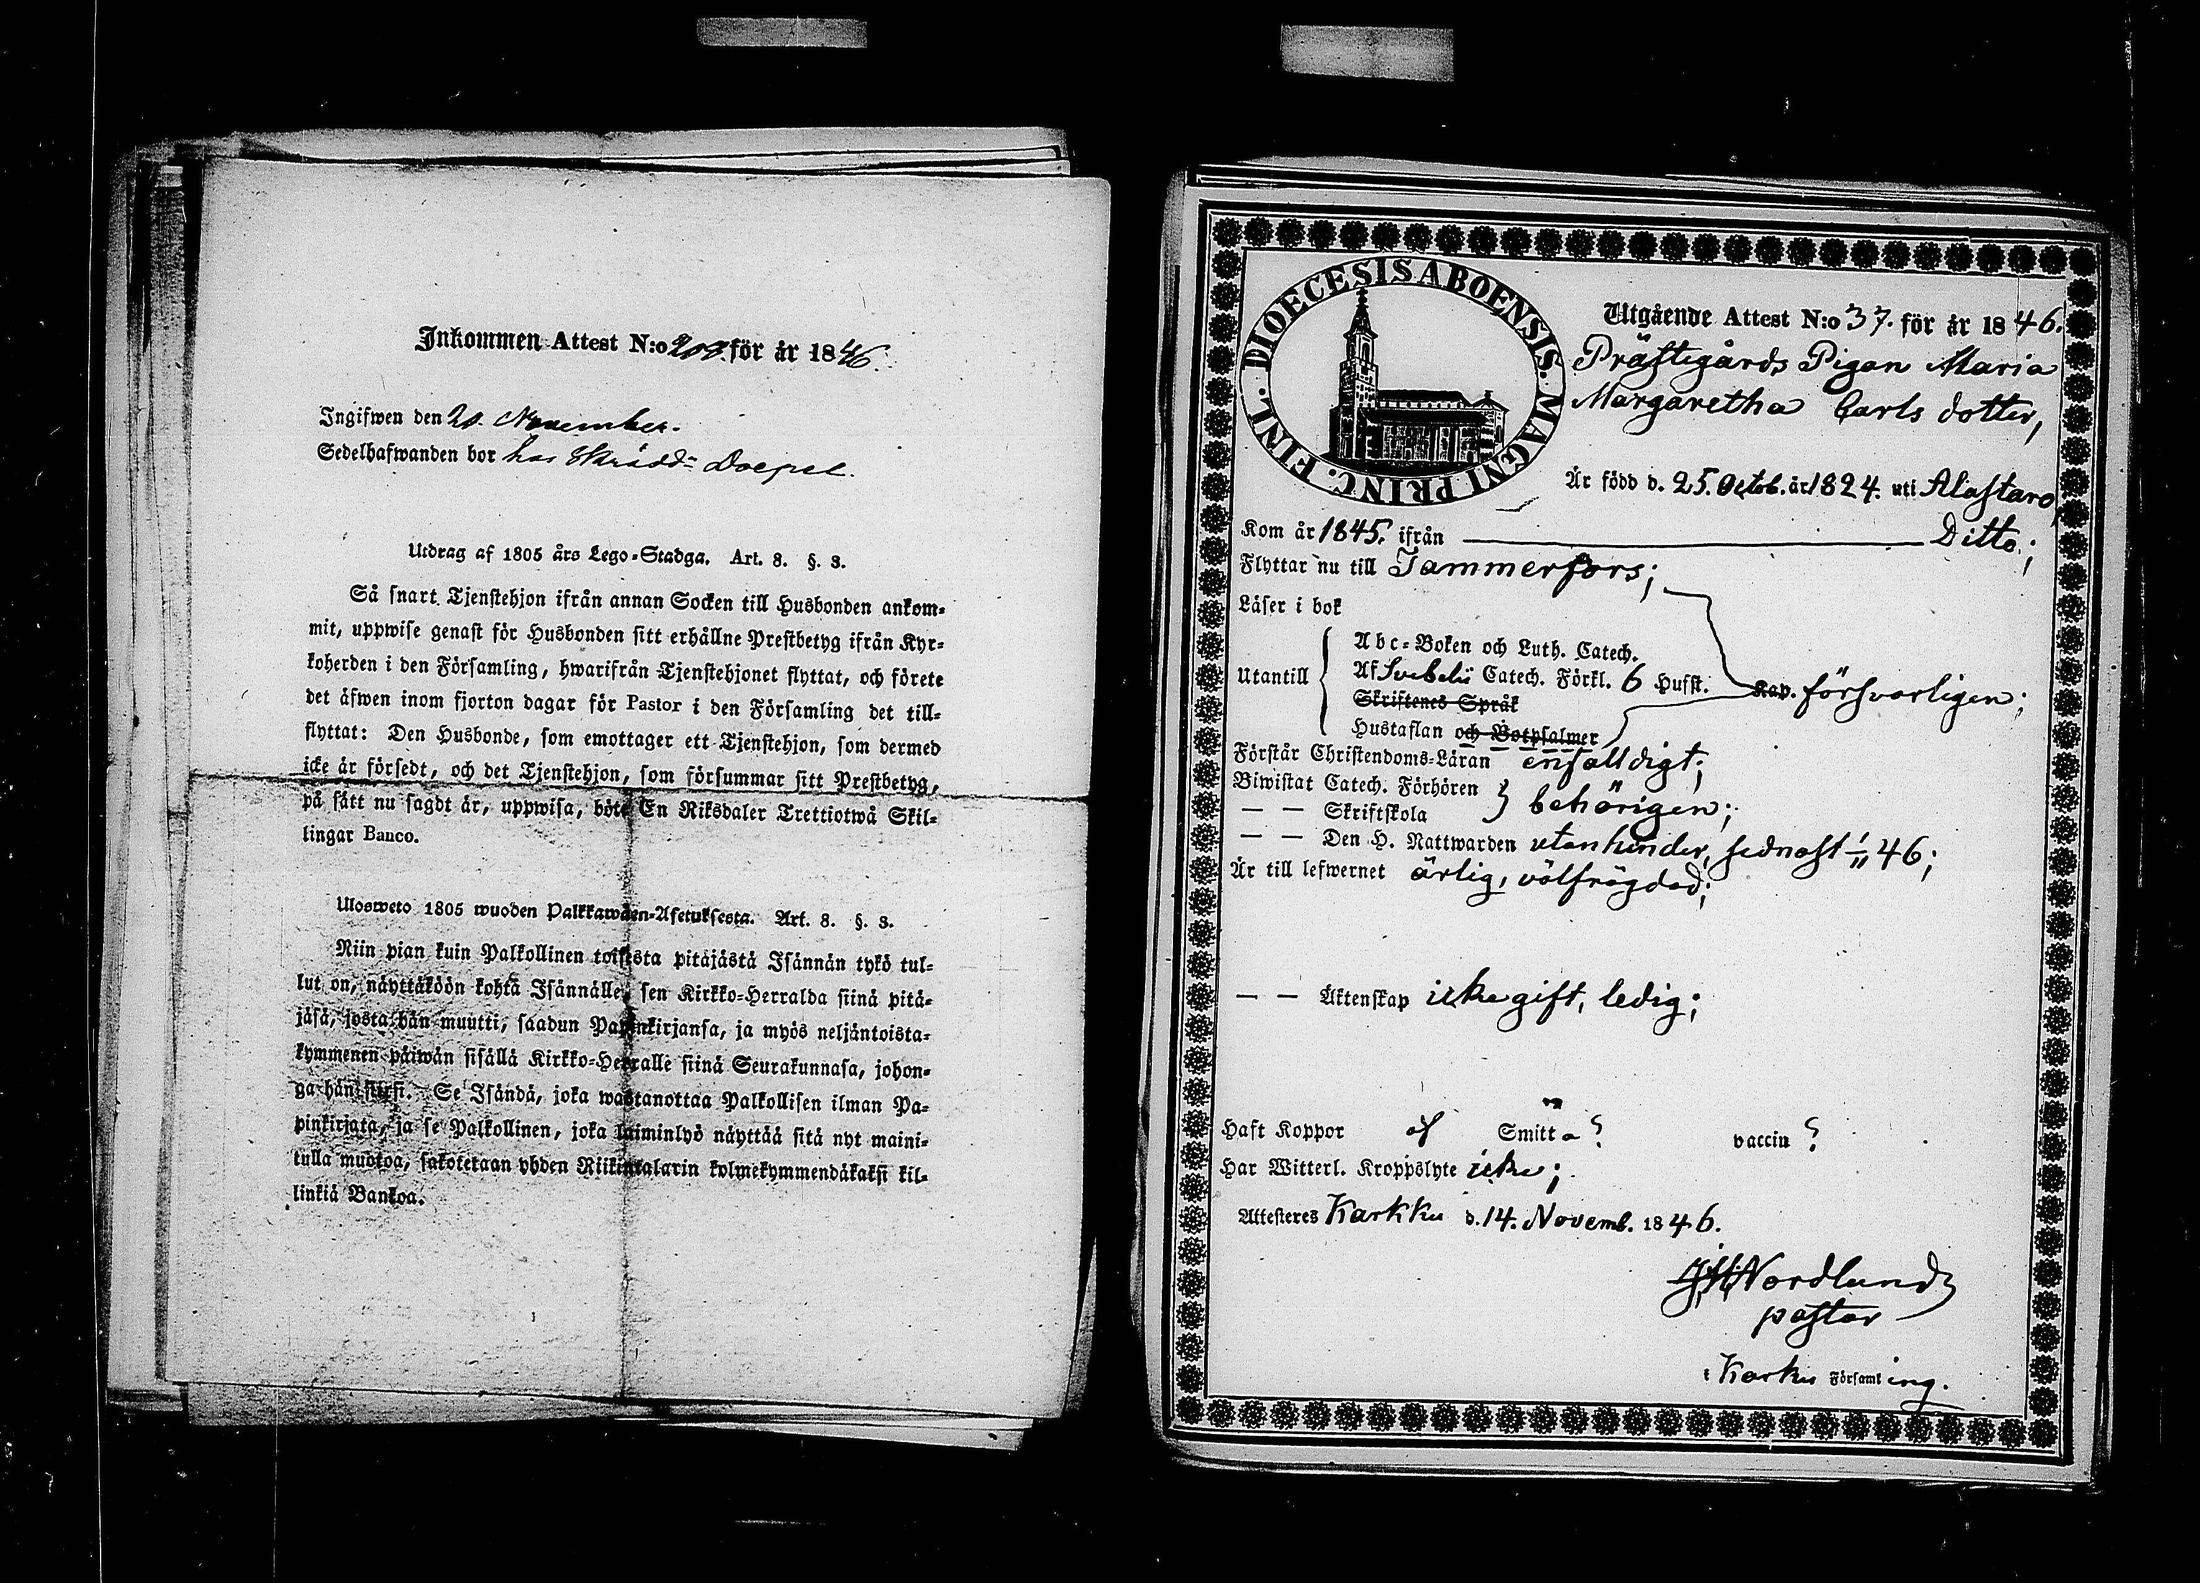 Inkommen Attest N:o 200. för år 1846.
Ingifwen den 20. November.
Sedelhafwanden bor hos Skrädd: Doepel.
Utdrag af 1805 års Lego-Stadga. Art. 8. §. 3.
Så snart Tjenstehjon ifrån annan Socken till Husbonden ankom-
mit, uppwise genast för Husbonden sitt erhållne Prestbetyg ifrån Kyr-
koherden i den Församling, hwarifrån Tjenstehjonet flyttat, och förete
det äfwen inom fjorton dagar för Pastor i den Församling det till-
flyttat: Den Husbonde, som emottager ett Tjenstehjon, som dermed
icke är försedt, och det Tjenstehjon, som försummar sitt Prestbetyg,
på sätt nu sagdt är, uppwisa, böte En Riksdaler Trettiotwå Skil-
lingar Banco.
Ulosweto 1805 wuoden Palkkawäen-Asetuksesta. Art. 8. §. 3.
Niin pian kuin Palkollinen toisesta pitäjästä Isännän tykö tul-
lut on, näyttäköön kohta Isännälle, sen Kirkko-Herralda siinä pitä-
jäsä, josta hän muutti, saadun Papinkirjansa, ja myös neljäntoista-
kymmenen päiwän sisällä Kirkko-Herralle siinä Seurakunnasa, johon-
ga hän siirsi. Se Isändä, joka wastanottaa Palkollisen ilman Pa-
pinkirjata, ja se Palkollinen, joka laiminlyö näyttää sitä nyt maini-
tulla muotoa, sakoteraan yhden Riikintalarin kolmekymmendäkaksi kil-
linkiä Bankoa.
DIOECESIS ABOENSIS. MAGNI PRINC. FINL.
Utgående Attest N:o 37. för år 1846.
Prästegårds Pigan Maria
Margaretha Carls dotter,
Är född d. 25. Octob. år 1824. uti Alastaro,
Kom år 1845. ifrån Ditto.;
Flyttar nu till Tammerfors;
Läser i bok
Abc-Boken och Luth. Catech.
Utantill Af Svebelii Catech. Förkl. 6 Hufst. Kap. försvarligen;
Skriftenes Språk
Hustaflan och Botpsalmer
Förstår Christendoms-Läran enfalldigt;
Biwistat Catech. Förhören behörigen;
— — Skriftskola
— — Den H. Nattwarden utan hinder, sednast 1/11 46;
Är till lefwernet ärlig, välfrägdad;
— — Äktenskap icke gift, ledig;
Haft Koppor af Smitta? vaccin?
Har Witterl. Kroppslyte icke;
Attesteres Karkku d. 14. Novemb. 1846.
Nordlund
pastor
i Karku Församling.